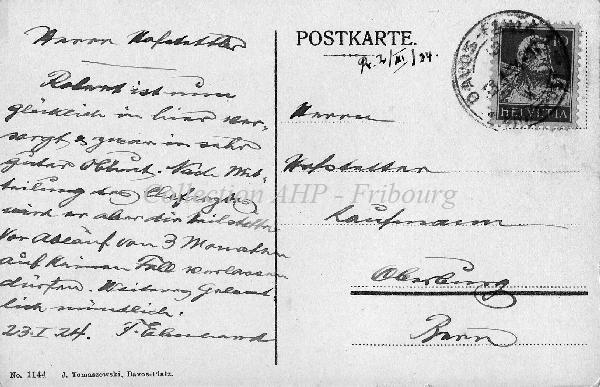 Herrn Hofstettler
Robert ist nun
glücklich in hier ver-
sorgt, & zwar in sehr
guter Obhut. Nach Mit-
teilung des Chefarztes
wird er aber die Heilstätte
vor Ablauf von 3 Monaten
auf keinen Fall verlassen
dürfen. Weiteres
lich mündlich.
23.I.24. F. Eberhard
No. 1144 J. Tomaszewski, Davos-Platz.
POSTKARTE.
DAVOS
HELVETIA
Herrn
Hofstetter
Kaufmann
Oberburg
Bern
Collection AHP - Fribourg